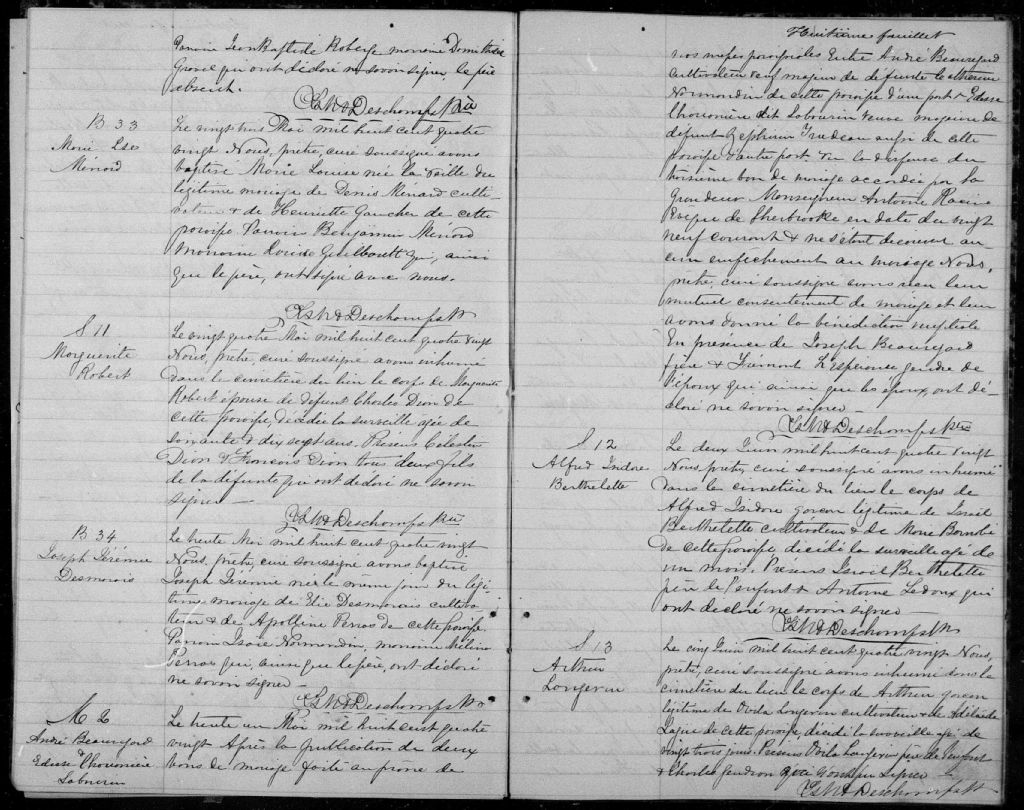 Parrain Jean Baptiste Roberge marraine Domithilde
Gravel qui ont déclaré ne savoir signer, le père
absent.
Deschamps Ptre
B 33
Marie Lse
Ménard
Le vingt trois Mai mil huit cent quatre
vingt Nous, prêtre, curé soussigné avons
baptisé Marie Louise née la veille du
légitime mariage de Denis Ménard culti-
vateur & de Henriette Gaucher de cette
paroisse. Parrain Benjamin Ménard
Marraine Louise Guilbault qui, ainsi
que le père, ont signé avec nous.
Deschamps Ptr
S 11
Marguerite
Robert
Le vingt quatre Mai mil huit cent quatre vingt
Nous, prêtre, curé soussigné avons inhumé
dans le cimétière du lieu le corps de Marguerite
Robert épouse de défunt Charles Dion de
cette paroisse, décédée la surveille agée de
soixante & dix sept ans. Présens Célestin
Dion & François Dion tous deux fils
de la défunte qui ont déclaré ne savoir
signer —
Deschamps Ptre
B 34
Joseph Jérémie
Desmarais
Le trente Mai mil huit cent quatre vingt
Nous, prêtre, curé soussigné avons baptisé
Joseph Jérémie né le même jour du légi-
time mariage de Elie Desmarais cultiva-
teur & de Apolline Perras de cette paroisse.
Parrain Isaie Normandin, marraine Mélina
Perras qui, ainsi que le père, ont déclaré
ne savoir signer —
Deschamps Ptre
M 2
André Beauregard
&
Edesse Chouonière
Labourin
Le trente un Mai mil huit cent quatre
vingt Après la publication de deux
bans de mariage faite au prône de
Huitième feuillet
nos messes paroissiales Entre André Beauregard
cultivateur veuf majeur de défunte Catherine
Normandin de cette paroisse d'une part & Edesse
Chouonière dit Labourin veuve majeure de
défunt Zéphirin Trudeau aussi de cette
paroisse d'autre part. Vu la dispense du
troisième ban de mariage accordée par Sa
Grandeur Monseigneur Antoine Racine
Evêque de Sherbrooke en date du vingt
neuf courant & ne s'étant découvert au
cun empêchement au mariage Nous,
prêtre, curé soussigné avons reçu leur
mutuel consentement de mariage et leur
avons donné la bénédiction nuptiale
En présence de Joseph Beauregard
frère & Frémont Lespérance gendre de
l'époux qui ainsi que les époux, ont dé-
claré ne savoir signer —
Deschamps Ptre
S 12
Alfred Isidore
Berthelette
Le deux Juin mil huit cent quatre vingt
Nous, prêtre, curé soussigné avons inhumé
dans le cimétière du lieu le corps de
Alfred Isidore garçon légitime de Israël
Berthelette cultivateur & de Marie
de cette paroisse décédé la surveille agé de
un mois. Présens Israël Berthelette
père de l'enfant & Antoine Ledoux qui
ont déclaré ne savoir signer —
Deschamps Ptr
S 13
Arthur
Langevin
Le cinq Juin mil huit cent quatre vingt Nous,
prêtre, curé soussigné avons inhumé dans le
cimétière du lieu le corps de Arthur garçon
légitime de Ovila Langevin cultivateur & de Adélaïde
de cette paroisse, décédé la surveille agé de
vingt trois jours. Présens Ovila Langevin père de l'enfant
& Charles Gendron
Deschamps Ptr